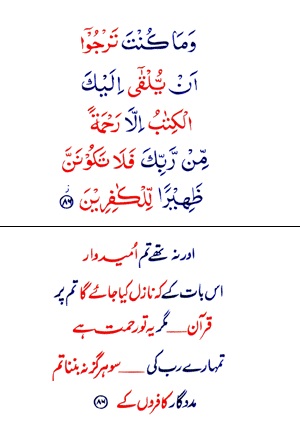 وَمَا كُنْتَ تَرْجُوْٓا
اَنْ يُّلْقٰٓى اِلَيْكَ
الْكِتٰبُ اِلَّا رَحْمَةً
مِّنْ رَّبِّكَ فَلَا تَكُوْنَنَّ
ظَهِيْرًا لِّلْكٰفِرِيْنَ ﴿۸۶﴾
اور نہ تھے تم اُمیدوار
اس بات کے کہ نازل کیا جائے گا تم پر
قرآن __ مگر یہ تو رحمت ہے
تمہارے رب کی ___ سو ہرگز نہ بننا تم
مددگار کافروں کے ﴿۸۶﴾